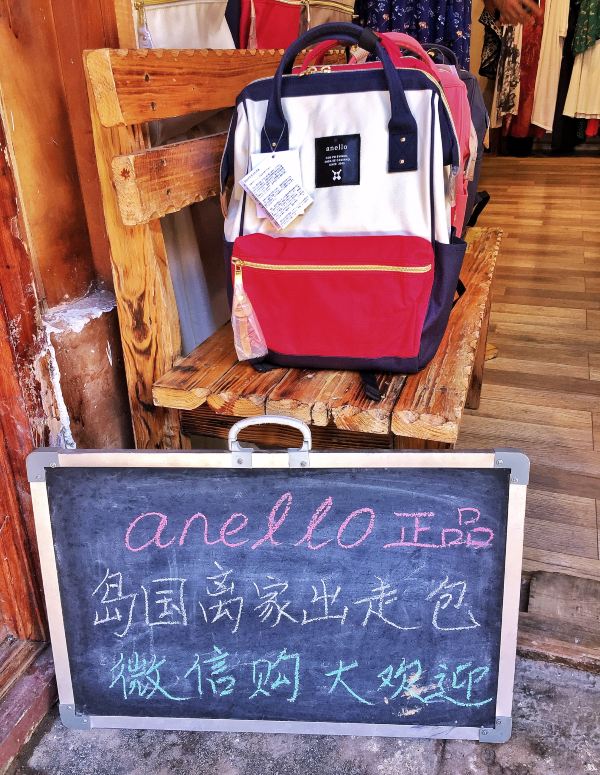 anello
anello 正品
岛国离家出走包
微信购大欢迎